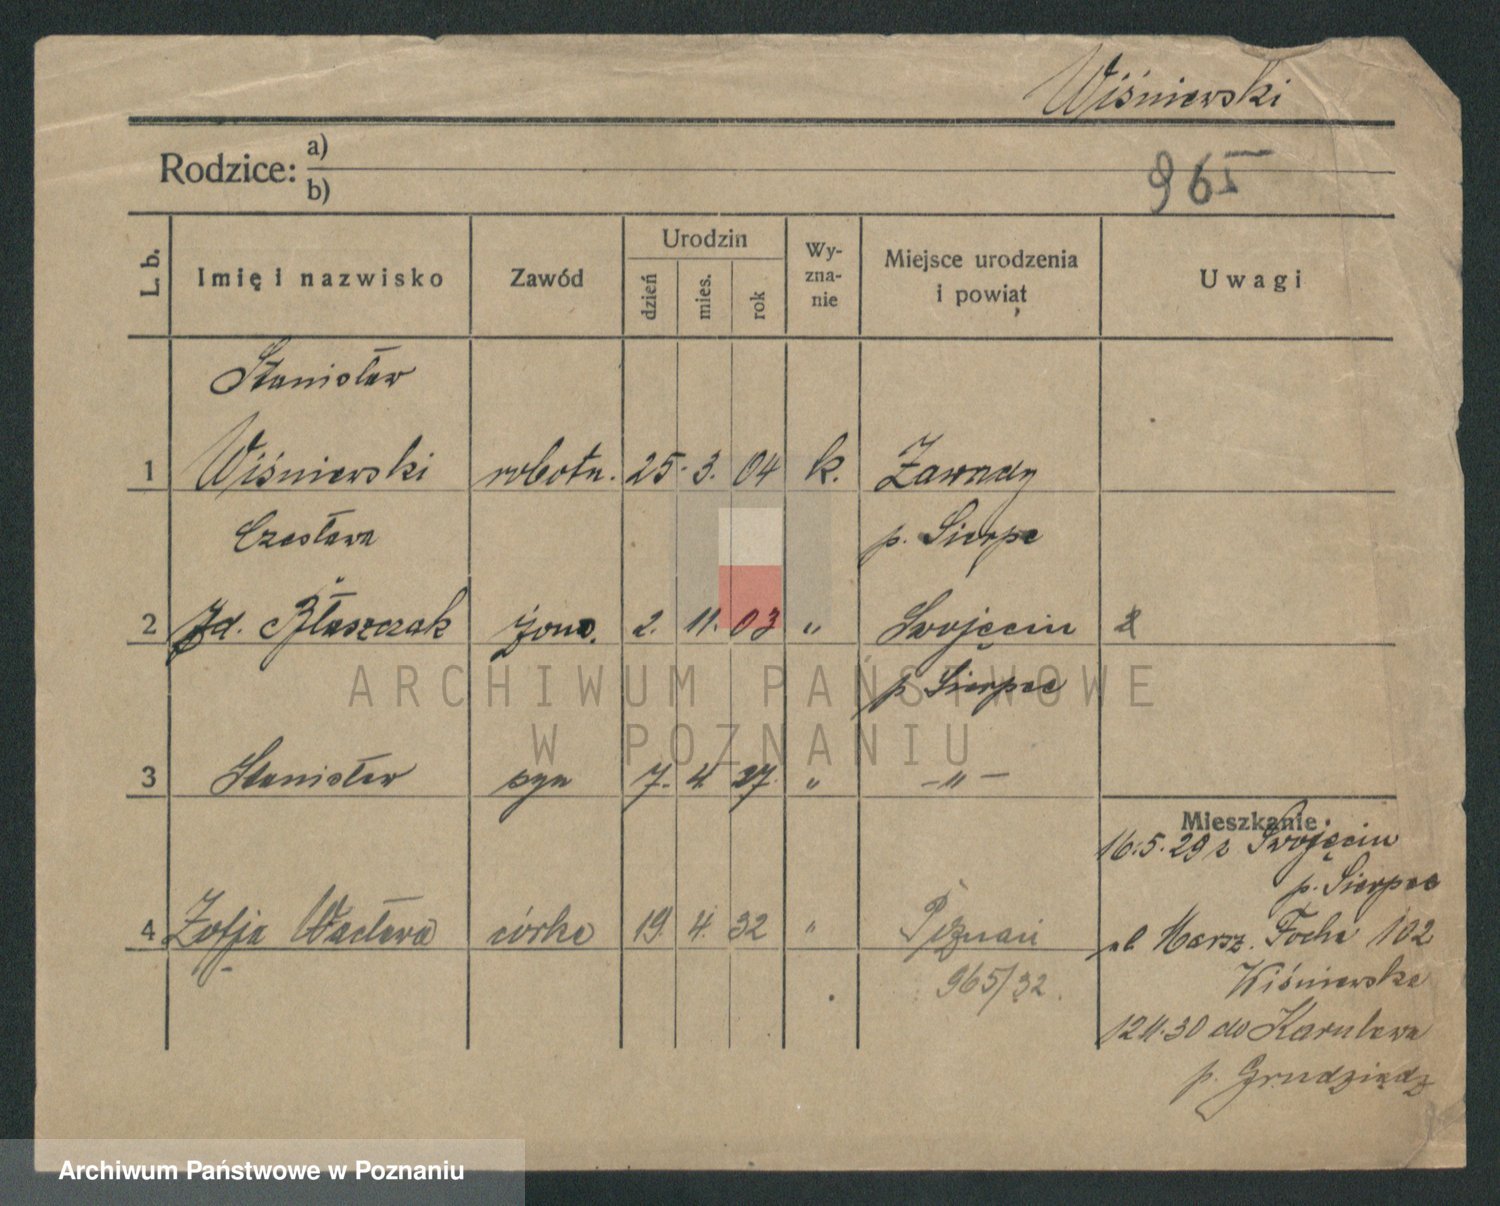 Wiśniewski
Rodzice: a)
b)
965
L. b.
Imię i nazwisko
Zawód
Urodzin
dzień
mies.
rok
Wy-
zna-
nie
Miejsce urodzenia
i powiat
Uwagi
Stanisław
1 Wiśniewski robotn. 25. 3. 04 k. Zawady
Czesława p. Sierpc
2 Błaszczak żona. 2. 11. 03 „ Swojęcin 2
p. Sierpce
3 Stanisław syn 7. 4. 27. „ -„-
Mieszkanie:
16.5.29 z Swojęcin
p. Sierpce
4 Zofja Wacława córka 19. 4. 32 „ Poznań
ul. Marsz. Focha 102
965/32.
Wiśniewska
12.11.30 do
p. Grudziądz
ARCHIWUM PAŃSTWOWE
W POZNANIU
Archiwum Państwowe w Poznaniu